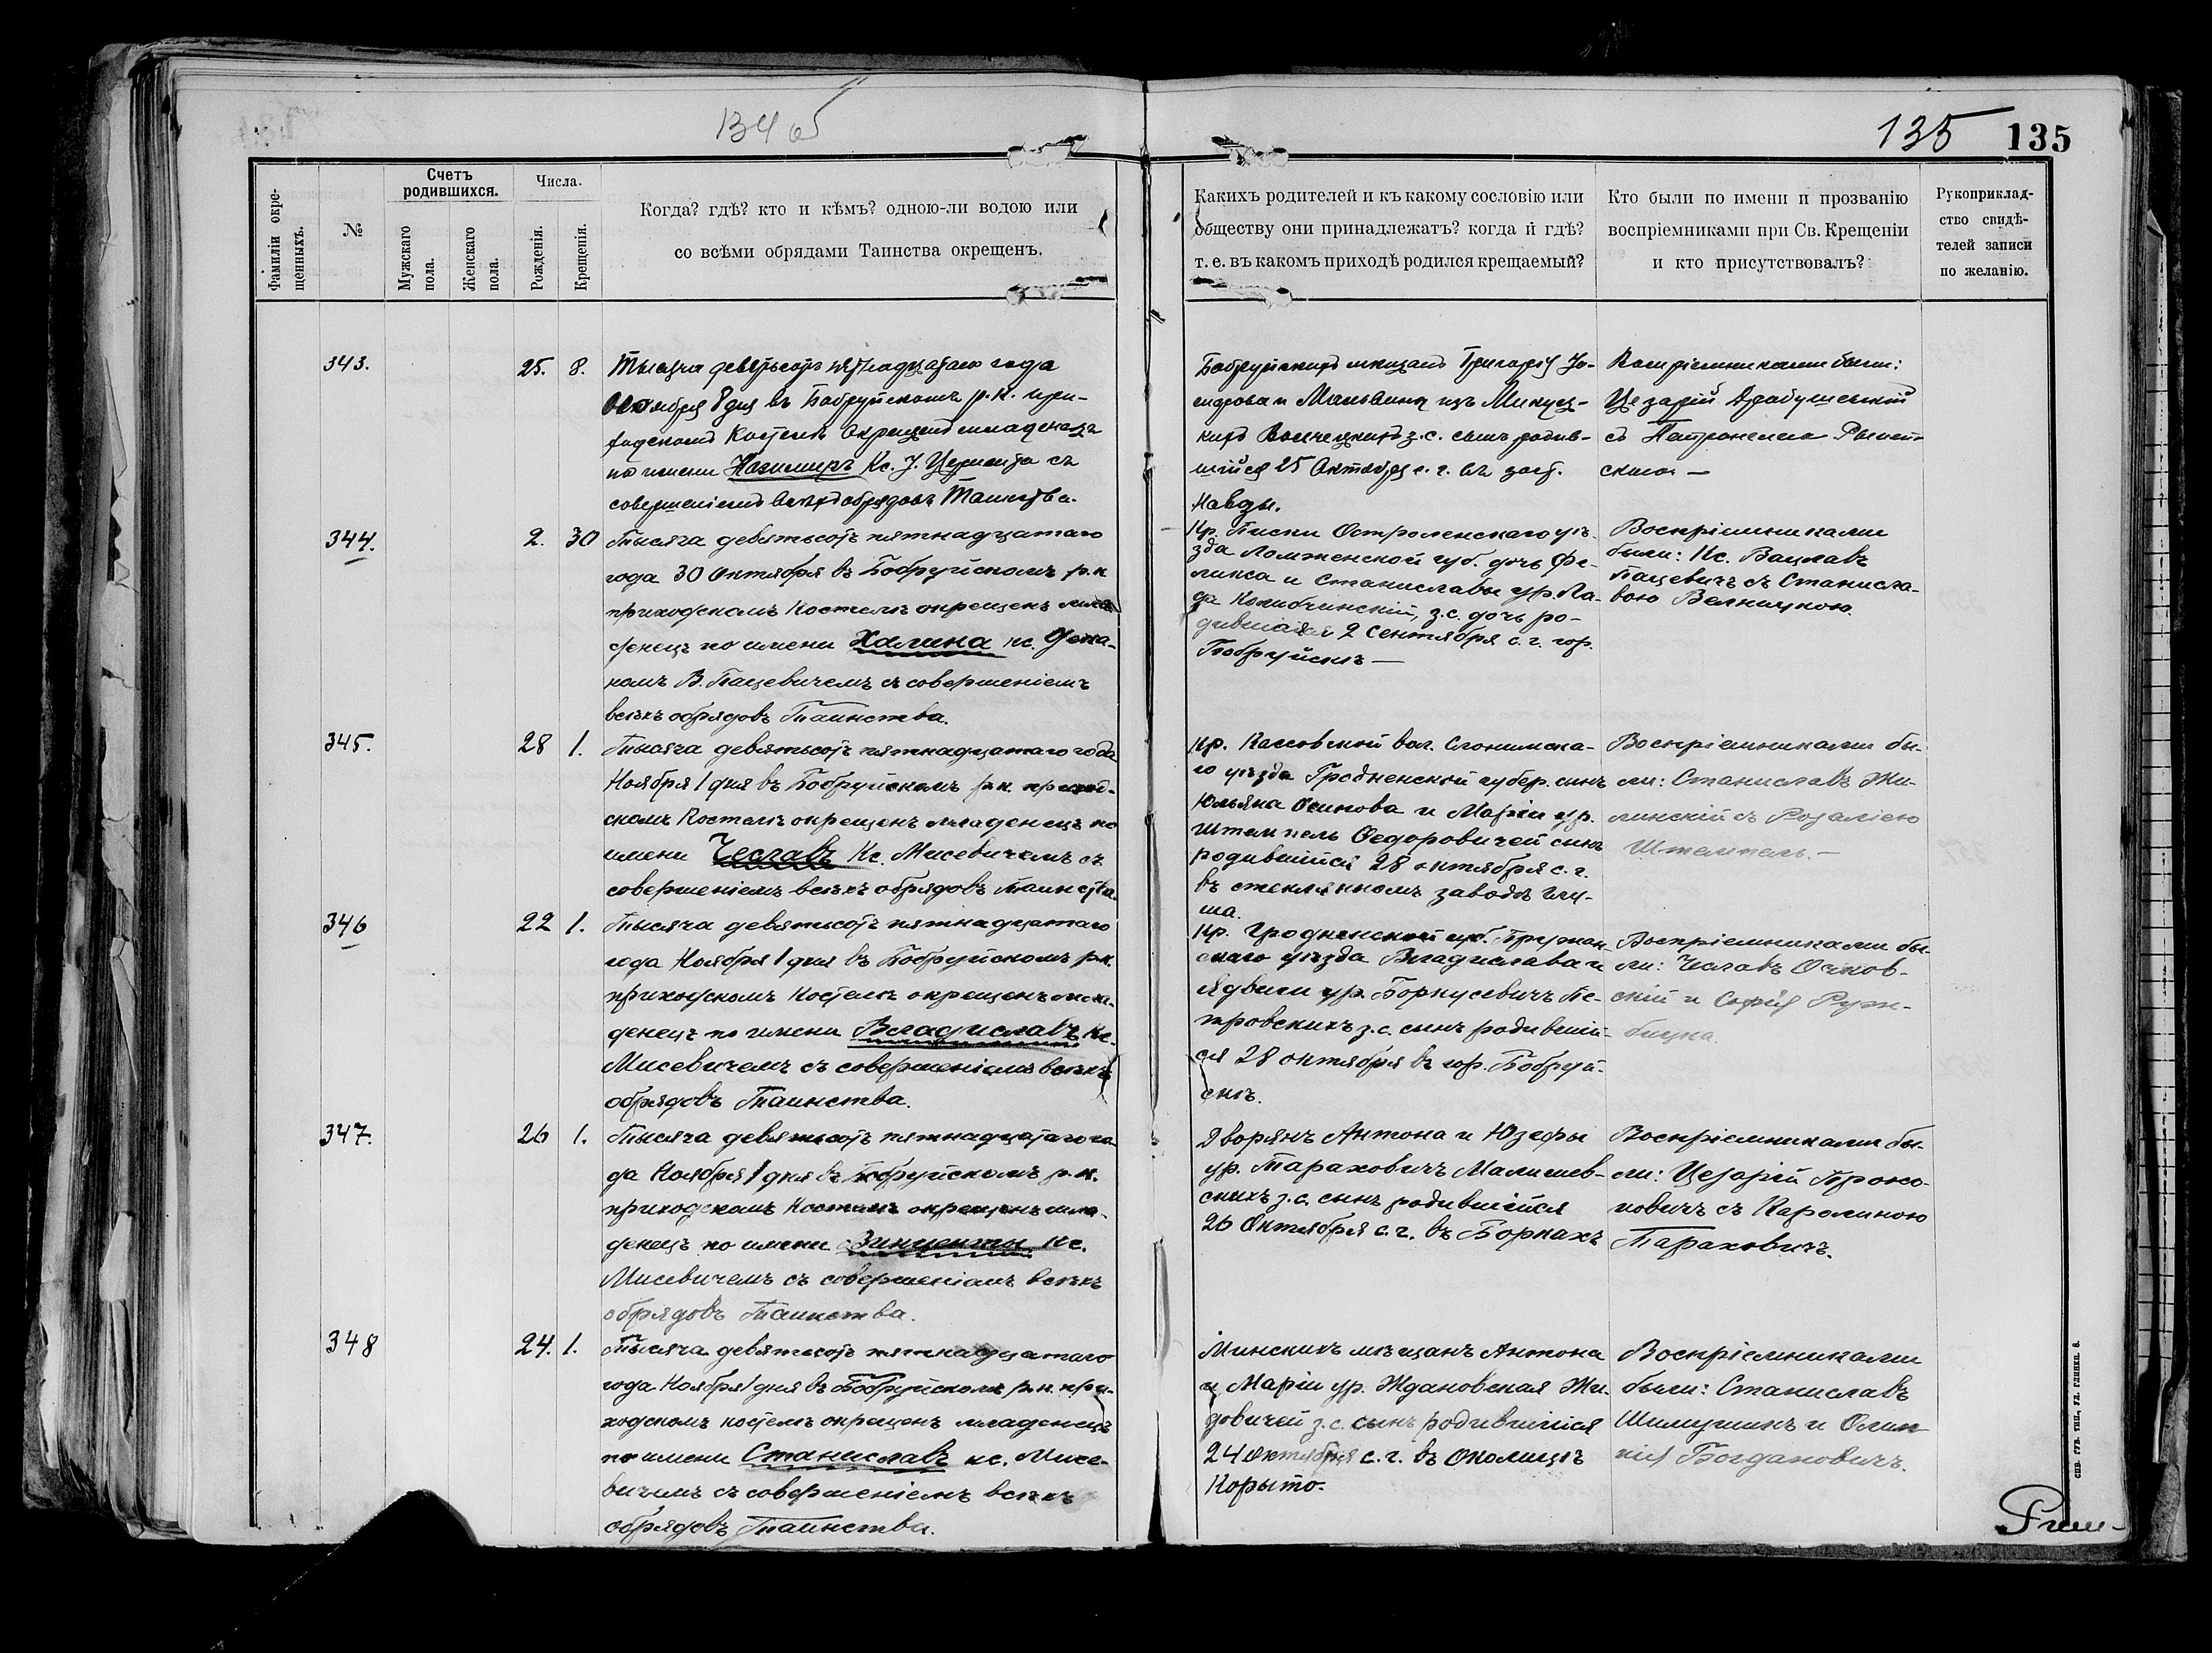 134 об
135
135
Фамиліи окре-
щенныхъ.
№
Счетъ
родившихся.
Мужскаго
пола.
Женскаго
пола.
Числа.
Рожденія.
Крещенія.
Когда? гдѣ? кто и кѣмъ? одною-ли водою или
со всѣми обрядами Таинства окрещенъ.
Какихъ родителей и къ какому сословію или
обществу они принадлежатъ? когда и гдѣ?
т. е. въ какомъ приходѣ родился крещаемый?
Кто были по имени и прозванію
воспріемниками при Св. Крещеніи
и кто присутствовалъ?
Рукоприклад-
ство свидѣ-
телей записи
по желанію.
343.
25. 8.
Тысяча девятьсотъ пятнадцатаго года
Ноября 8 дня въ Бобруйскомъ р.к. при-
ходскомъ Костелѣ окрещенъ младенецъ
по имени Казимиръ Кс. съ
совершеніемъ всѣхъ обрядовъ Таинства.
Бобруйскихъ мѣщанъ Григорія
и Мальвины изъ
з.с. сынъ родив-
шійся 25 Октября с. г. въ
Воспріемниками были:
Цезарій
съ Петронелею
344.
2. 30
Тысяча девятьсотъ пятнадцатаго
года 30 Октября въ Бобруйскомъ р.к
приходскомъ Костелѣ окрещенъ мла-
денецъ по имени Халина кс. Дека-
номъ В. Пацевичемъ съ совершеніемъ
всѣхъ обрядовъ Таинства.
Кр. Писки Остроленскаго уѣ-
зда Ломженской губ. дочь Фе-
ликса и Станиславы ур. Ла-
да з.с. дочь ро-
дившаяся 2 Сентября с. г. гор.
Бобруйскъ —
Воспріемниками
были: Кс. Вацлавъ
Пацевичъ съ Станисла-
вою
345.
28 1.
Тысяча девятьсотъ пятнадцатаго года
Ноября 1 дня въ Бобруйскомъ р.к. приход-
скомъ Костелѣ окрещенъ младенецъ по
имени Чеславъ Кс. Мисевичемъ съ
совершеніемъ всѣхъ обрядовъ Таинства.
Кр. Коссовской вол. Слонимска-
го уѣзда Гродненской губер. сынъ
Юльяна Осипова и Маріи ур.
Штемпель Федоровичей сынъ
родившійся 28 октября с. г.
въ стеклянномъ заводѣ Глу-
ша.
Воспріемниками бы-
ли: Станиславъ Жи-
линскій съ Розаліею
Штемпель. —
346
22 1.
Тысяча девятьсотъ пятнадцатаго
года Ноября 1 дня въ Бобруйскомъ р.к.
приходскомъ Костелѣ окрещенъ мла-
денецъ по имени Владиславъ Кс.
Мисевичемъ съ совершеніемъ всѣхъ
обрядовъ Таинства.
Кр. Гродненской губ. Пружан-
скаго уѣзда Владислава и
Ядвиги ур. Боркусевичъ Пе-
тровскихъ з.с. сынъ родившій-
ся 28 октября въ гор. Бобруй-
скѣ.
Воспріемниками бы-
ли: Чеславъ
скій и Софія
347.
26 1.
Тысяча девятьсотъ пятнадцатаго го-
да Ноября 1 дня въ Бобруйскомъ р.к.
приходскомъ Костелѣ окрещенъ мла-
денецъ по имени Винценты Кс.
Мисевичемъ съ совершеніемъ всѣхъ
обрядовъ Таинства.
Дворянъ Антона и Юзефы
ур. Тараховичъ Малишев-
скихъ з.с. сынъ родившійся
26 Октября с. г. въ Боркахъ
Воспріемниками бы-
ли: Цезарій Проко-
повичъ съ Каролиною
Тараховичъ.
348
24. 1.
Тысяча девятьсотъ пятнадцатаго
года Ноября 1 дня въ Бобруйскомъ р.к. при-
ходскомъ костелѣ окрещенъ младенецъ
по имени Станиславъ кс. Мисе-
вичемъ съ совершеніемъ всѣхъ
обрядовъ Таинства.
Минскихъ мѣщанъ Антона
и Маріи ур. Ждановская Жи-
довичей з.с. сынъ родившійся
24 октября с. г. въ околицѣ
Корыто.
Воспріемниками
были: Станиславъ
и Олим-
пія Богдановичъ.